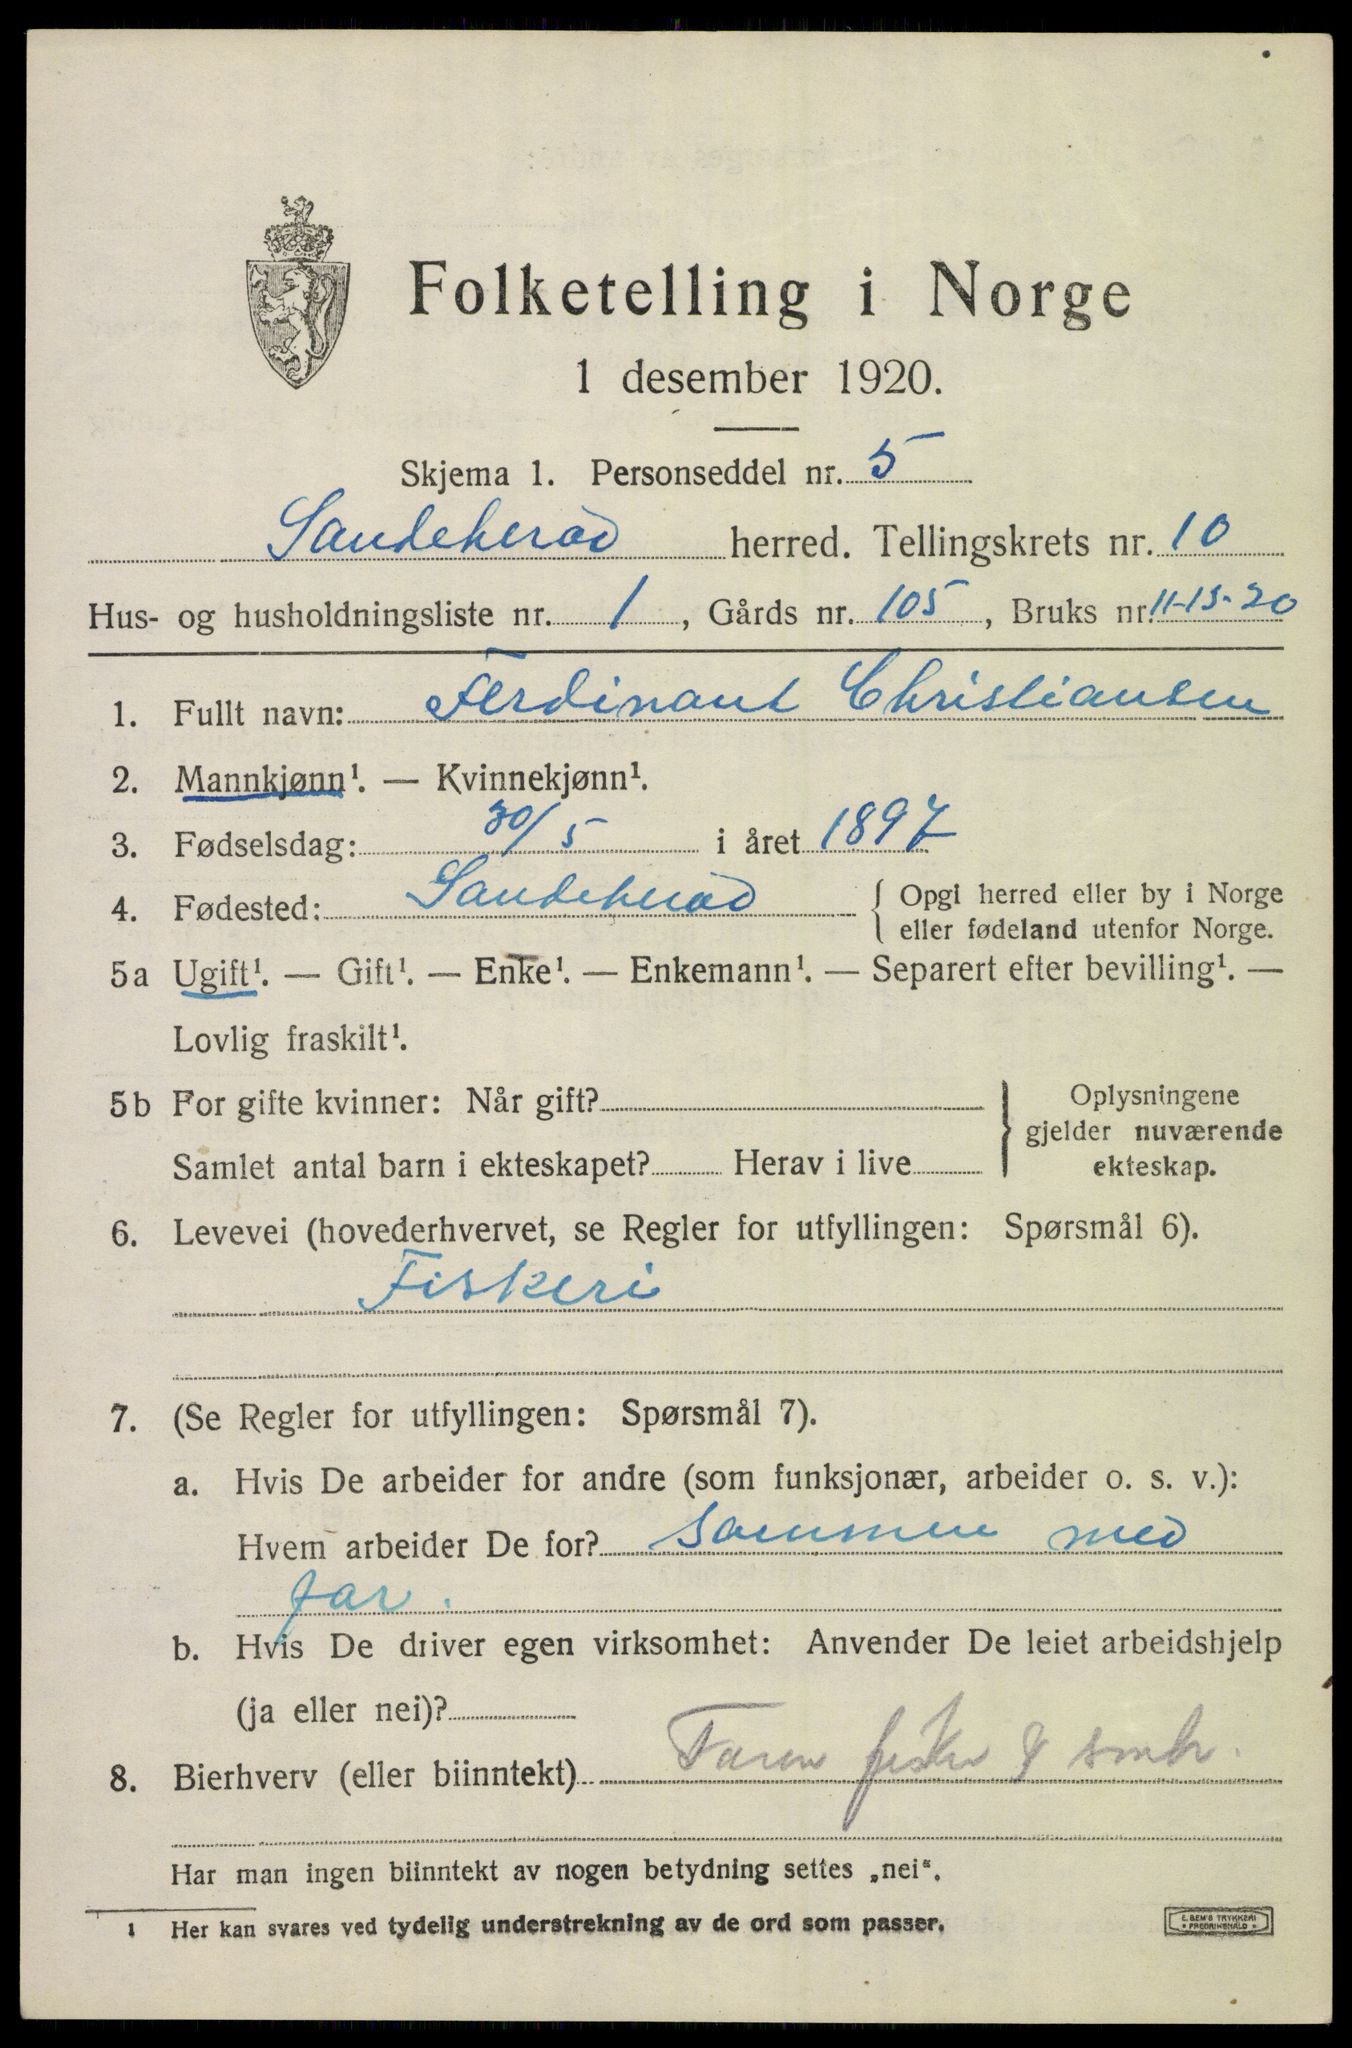 Folketelling i Norge
1 desember 1920.
Skjema 1. Personseddel nr. 5
Sandeherad herred. Tellingskrets nr. 10
Hus- og husholdningsliste nr. 1, Gårds nr. 105, Bruks nr. 11-13-20
1. Fullt navn: Ferdinant Christiansen
2. Mannkjønn¹. — Kvinnekjønn¹.
3. Fødselsdag: 30/5 i året 1897
4. Fødested: Sandeherad { Opgi herred eller by i Norge
eller fødeland utenfor Norge.
5a Ugift¹. — Gift¹. — Enke¹. — Enkemann¹. — Separert efter bevilling¹. —
Lovlig fraskilt¹.
5b For gifte kvinner: Når gift?
Samlet antal barn i ekteskapet? Herav i live
} Oplysningene
gjelder nuværende
ekteskap.
6. Levevei (hovederhvervet, se Regler for utfyllingen: Spørsmål 6).
Fiskeri
7. (Se Regler for utfyllingen: Spørsmål 7).
a. Hvis De arbeider for andre (som funksjonær, arbeider o. s. v.):
Hvem arbeider De for? sammen med
far.
b. Hvis De driver egen virksomhet: Anvender De leiet arbeidshjelp
(ja eller nei)?
8. Bierhverv (eller biinntekt) Faren fisker & smbr.
Har man ingen biinntekt av nogen betydning settes „nei“.
1 Her kan svares ved tydelig understrekning av de ord som passer.
E. SEM'S TRYKKERI
• FREDRIKSHALD •